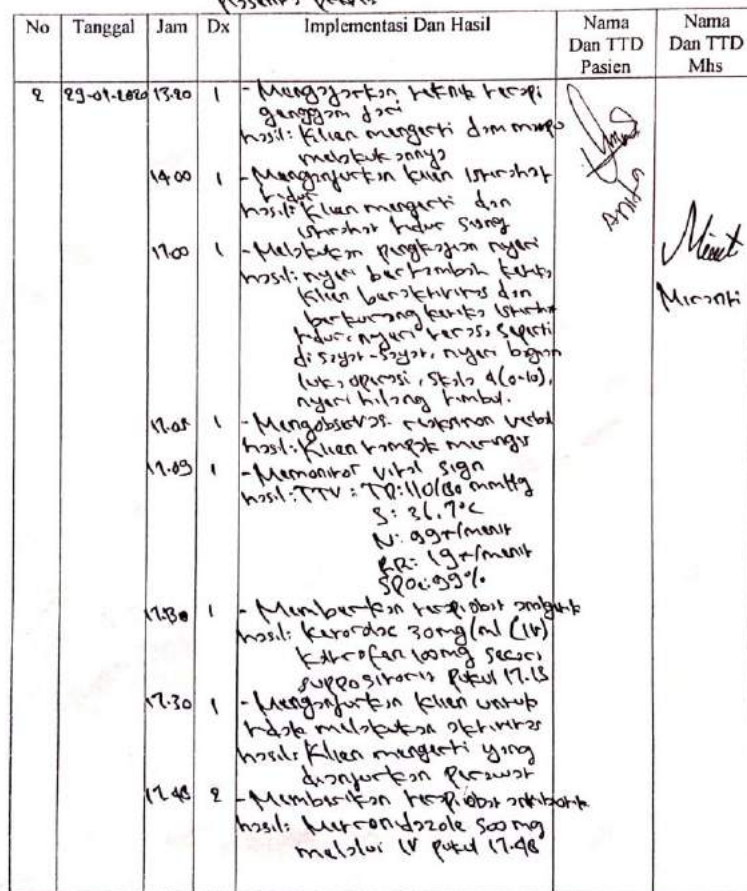 No Tanggal Jam Dx Implementasi Dan Hasil Nama Dan TTD Pasien Nama Dan TTD Mhs
2 13.20 1 - Mengajarkan teknik terapi
genggam jari
hasil: Klien mengerti dan mampu
melakukannya
14.00 1 - Menganjurkan klien istirahat
tidur
hasil: Klien mengerti dan
istirahat tidur siang
17.00 1 - Melakukan pengkajian nyeri
hasil: nyeri bertambah ketika
klien beraktivitas dan
berkurang ketika istirahat
tidur, nyeri terasa seperti
di sayat-sayat, nyeri bagian
luka operasi, skala 4 (0-10),
nyeri hilang timbul.
1 - Mengobservasi reaksi non verbal
hasil: Klien tampak meringis
17.09 1 - Memonitor vital sign
hasil: TTV: TD: 110/80 mmHg
S: 36,7°C
N: 99x/menit
RR: 19x/menit
SPO2: 99%
1 - Memberikan terapi obat analgetik
hasil: Ketorolac 30mg/ml (IV)
Kaltrofen 100mg secara
suppositoria pukul 17.15
17.30 1 - Menganjurkan klien untuk
tidak melakukan aktivitas
hasil: Klien mengerti yang
dianjurkan perawat
17.48 2 - Memberikan terapi obat antibiotik
hasil: Metronidazole 500 mg
melalui IV pukul 17.48
Miranti